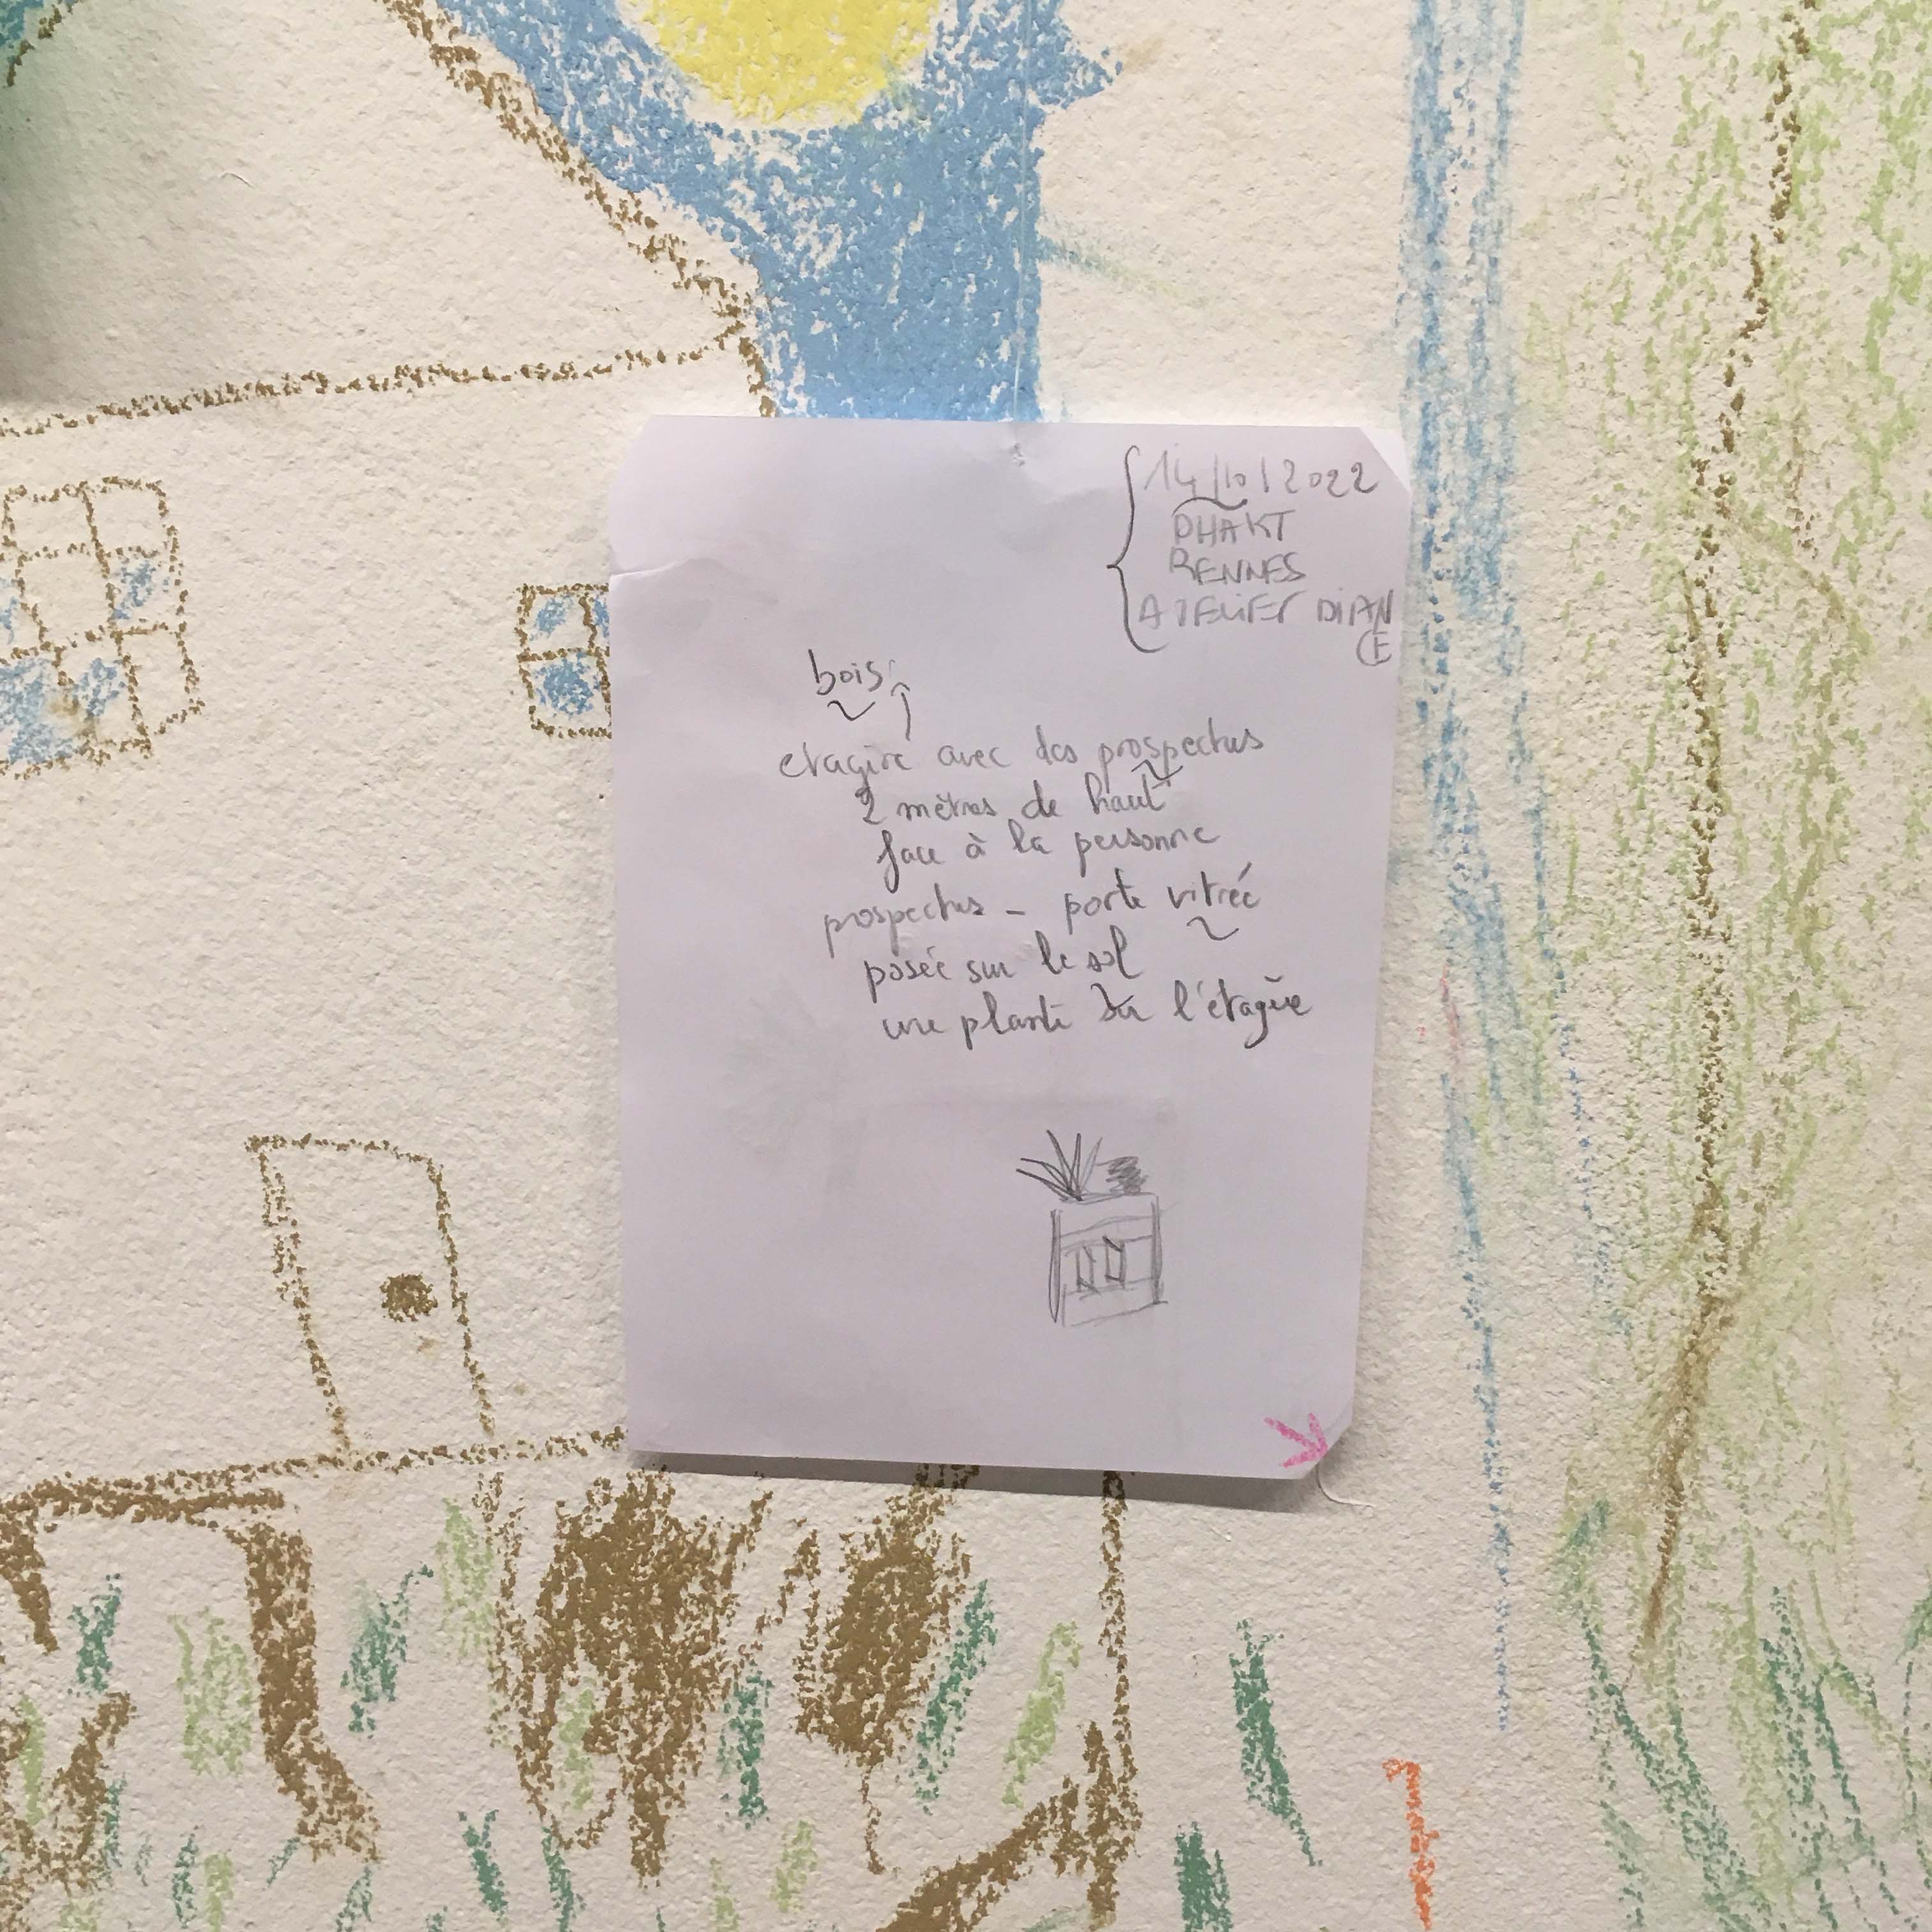 14/10/2022
PHAKT
RENNES
ATELIER DIAN
E
bois
etagire avec des prospectus
2 mètres de haut
face à la personne
prospectus - porte vitrée
posée sur le sol
une plante sur l'étagère